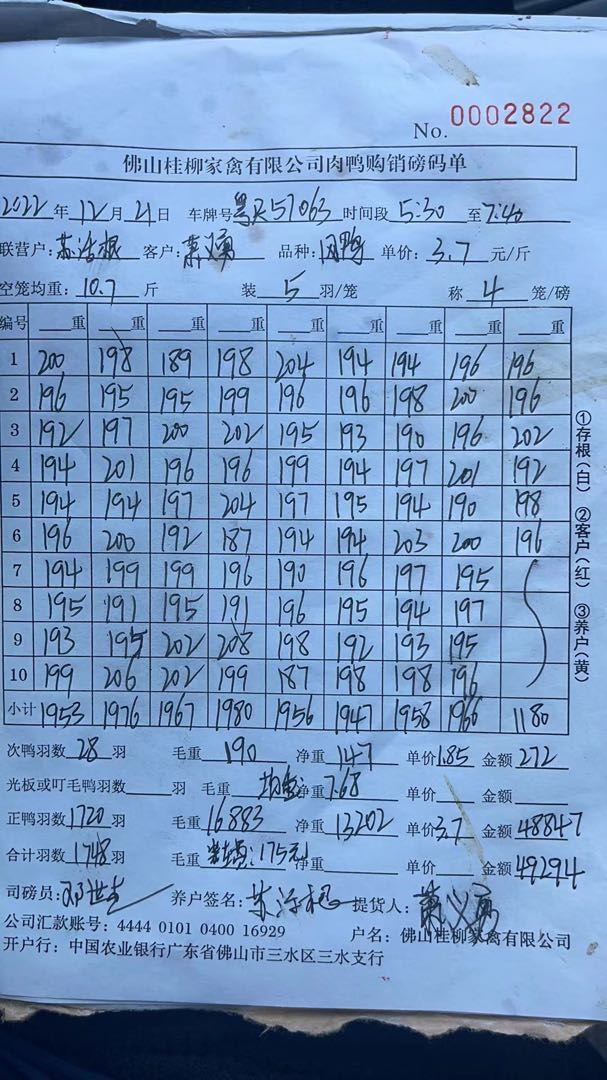 No. 0002822
佛山桂柳家禽有限公司肉鸭购销磅码单
2022年12月21日 车牌号粤R57063 时间段5:30至7:40
联营户:苏活根 客户:萧义勇 品种:肉鸭 单价:3.7元/斤
空笼均重:10.7斤 装5羽/笼 称4笼/磅
编号 重 重 重 重 重 重 重 重 重
1 200 198 189 198 204 194 194 196 196
2 196 195 195 199 196 196 198 200 196
3 192 197 200 202 195 193 190 196 202
4 194 201 196 196 199 194 197 201 192
5 194 194 197 204 197 195 194 190 198
6 196 200 192 187 194 194 203 200 196
7 194 199 199 196 190 196 197 195
8 195 191 195 191 196 195 194 197
9 193 195 202 208 198 192 193 195
10 199 206 202 199 187 198 198 196
小计 1953 1976 1967 1980 1956 1947 1958 1966 1180
①存根(白) ②客户(红) ③养户(黄)
次鸭羽数28羽 毛重190 净重147 单价1.85 金额272
光板或叮毛鸭羽数 羽 毛重 均重:净重7.68 单价 金额
正鸭羽数1720羽 毛重16883 净重13202 单价3.7 金额48847
合计羽数1748羽 毛重 :175元 净重 单价 金额49294
司磅员:邓世 养户签名:苏活根 提货人:萧义勇
公司汇款账号:4444 0101 0400 16929 户名:佛山桂柳家禽有限公司
开户行:中国农业银行广东省佛山市三水区三水支行